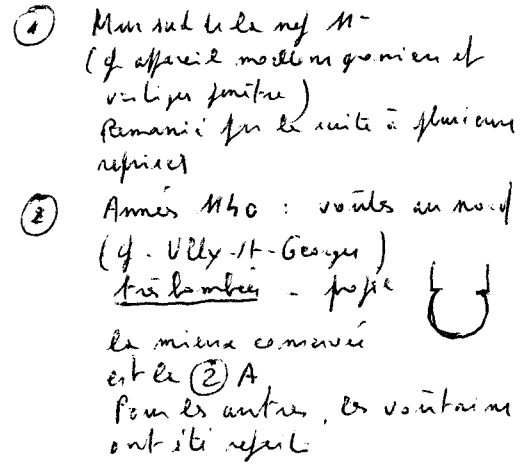 1 Mur sud de la nef 11-
(cf appareil moellons grossiers et
vestiges fenêtre)
Remanié par la suite à plusieurs
reprises
2 Années 1140 : voûtes au nord
(cf. Villy-St-Georges)
très bombées - profil
la mieux conservée
est la 2 A
Pour les autres, les voûtains
ont été refaits